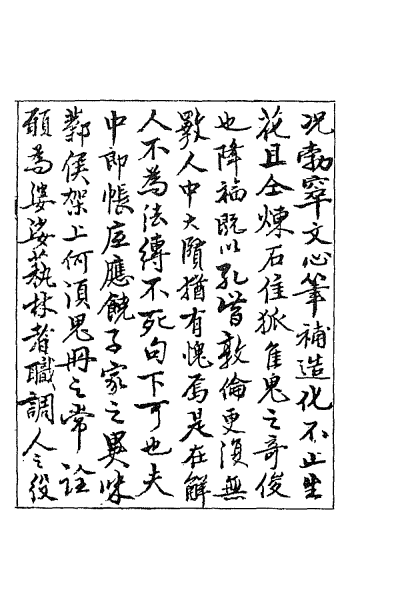 况勃窣文心筆補造化不止生
花且仝煉石佳狐佳鬼之奇俊
也降福既以孔皆敦倫更湏無
斁人中大賢猶有愧焉是在解
人不為法縛不死句下可也夫
中郎帳底應饒子家之異味
鄴侯架上何湏兔冊之常詮
願為婆娑藝林者職調人之役